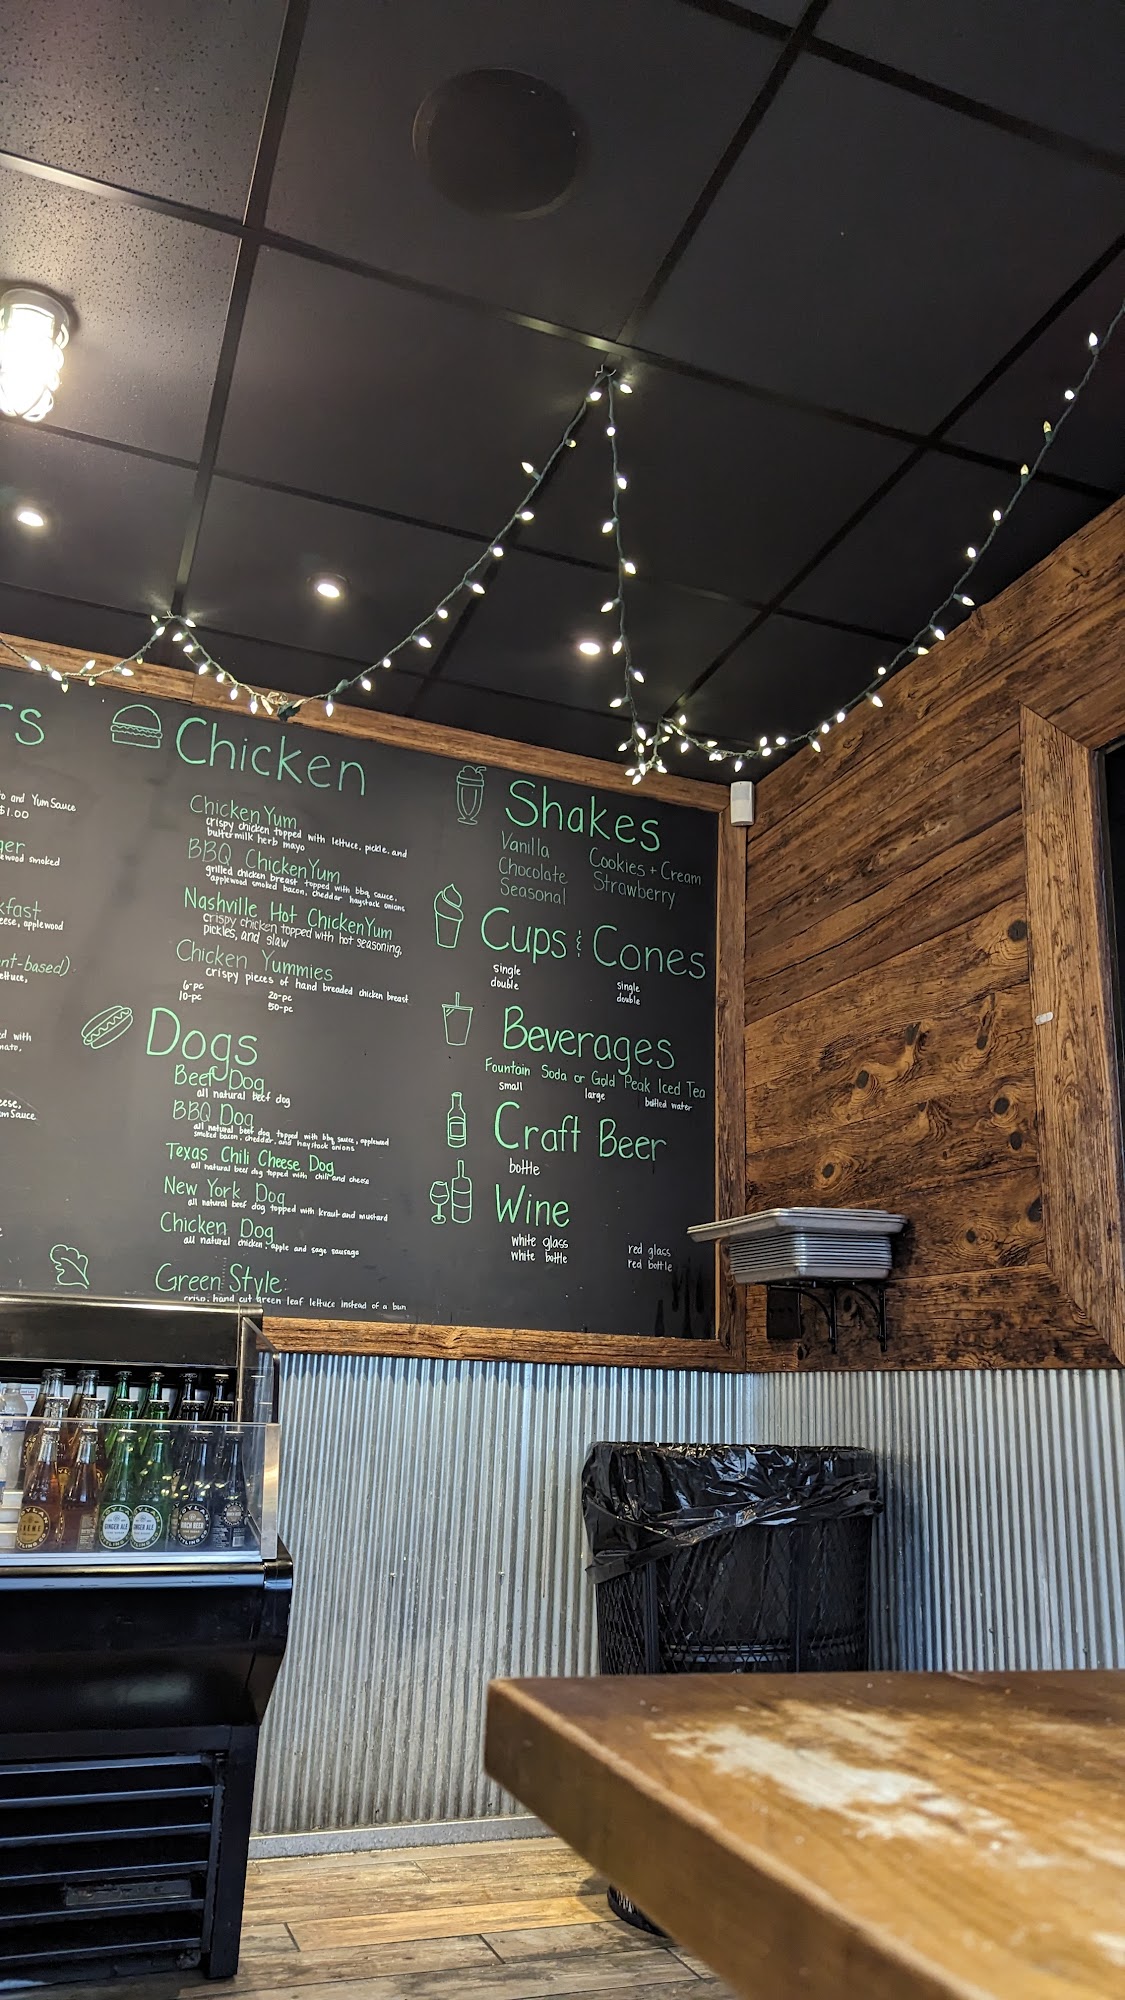 rs
to and Yum Sauce
$1.00
ger
smoked
kfast
eese, applewood
nt-based)
ettuce,
ed with
mato,
eese,
um Sauce
Chicken
Chicken Yum
crispy chicken topped with lettuce, pickle, and
buttermilk herb mayo
BBQ ChickenYum
grilled chicken breast topped with bbq sauce,
applewood smoked bacon, cheddar haystack onions
Nashville Hot ChickenYum
crispy chicken topped with hot seasoning,
pickles, and slaw
Chicken Yummies
crispy pieces of hand breaded chicken breast
6-pc 20-pc
10-pc 50-pc
Dogs
Beef Dog
all natural beef dog
BBQ Dog
all natural beef dog topped with bbq sauce, applewood
smoked bacon, cheddar, and haystack onions
Texas Chili Cheese Dog
all natural beef dog topped with chili and cheese
New York Dog
all natural beef dog topped with kraut and mustard
Chicken Dog
all natural chicken, apple and sage sausage
Green Style:
crisp, hand cut green leaf lettuce instead of a bun
Shakes
Vanilla Cookies + Cream
Chocolate Strawberry
Seasonal
Cups & Cones
single single
double double
Beverages
Fountain Soda or Gold Peak Iced Tea
small large bottled water
Craft Beer
bottle
Wine
white glass red glass
white bottle red bottle
GINGER ALE
GINGER ALE
BIRCH BEER